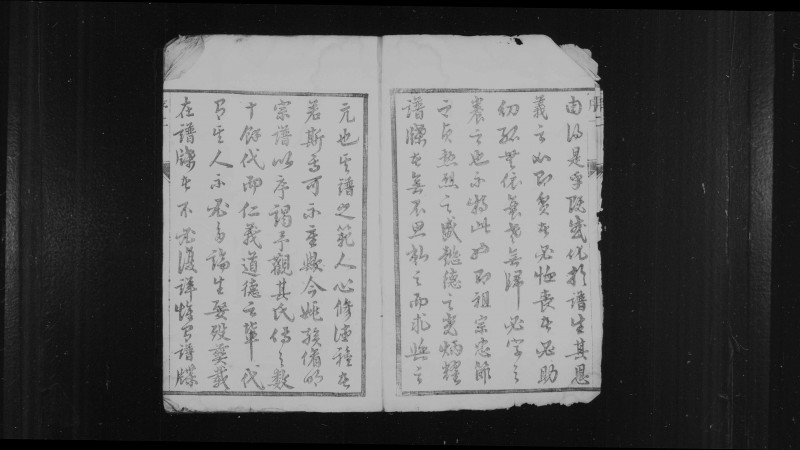 由得是乎既感化於譜生其恩
義之如即貧者必恤喪者必助
幼孤無依煢老無歸必字之
養之也亦特此也即祖宗忠節
之貞懃烈之盛懿德之光炳耀
譜牒者無不思於之而求無之
元也其譜之範人心修德種者
若斯焉可不重歟今姚族脩明
宗譜以序謁予觀其氏傳之數
十餘代而仁義道德之輩代
有其人不必多論生娶歿葬載
在譜牒者不必復詳惟有譜牒